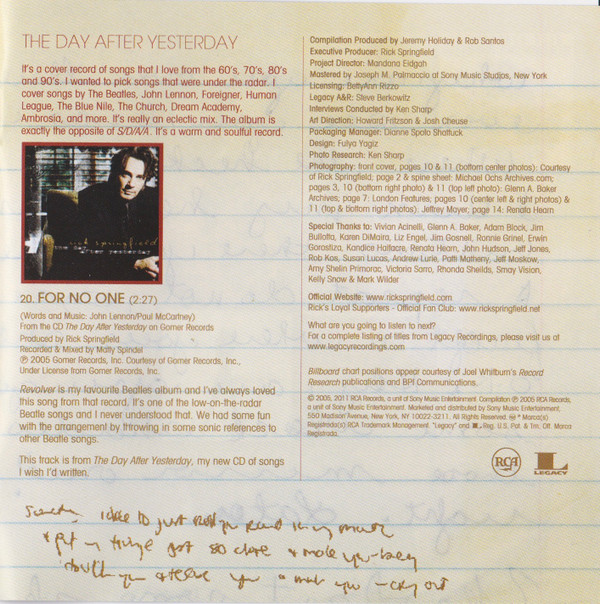 THE DAY AFTER YESTERDAY
It's a cover record of songs that I love from the 60's, 70's, 80's
and 90's. I wanted to pick songs that were under the radar. I
cover songs by The Beatles, John Lennon, Foreigner, Human
League, The Blue Nile, The Church, Dream Academy,
Ambrosia, and more. It's really an eclectic mix. The album is
exactly the opposite of S/D/A/A. It's a warm and soulful record.
rick springfield
the day after yesterday
20. FOR NO ONE (2:27)
(Words and Music: John Lennon/Paul McCartney)
From the CD The Day After Yesterday on Gomer Records
Produced by Rick Springfield
Recorded & Mixed by Matty Spindel
℗ 2005 Gomer Records, Inc. Courtesy of Gomer Records, Inc.,
Under License from Gomer Records, Inc.
Revolver is my favourite Beatles album and I've always loved
this song from that record. It's one of the low-on-the-radar
Beatle songs and I never understood that. We had some fun
with the arrangement by throwing in some sonic references to
other Beatle songs.
This track is from The Day After Yesterday, my new CD of songs
I wish I'd written.
Compilation Produced by Jeremy Holiday & Rob Santos
Executive Producer: Rick Springfield
Project Director: Mandana Eidgah
Mastered by Joseph M. Palmaccio at Sony Music Studios, New York
Licensing: BettyAnn Rizzo
Legacy A&R: Steve Berkowitz
Interviews Conducted by Ken Sharp
Art Direction: Howard Fritzson & Josh Cheuse
Packaging Manager: Dianne Spoto Shattuck
Design: Fulya Yagiz
Photo Research: Ken Sharp
Photography: front cover, pages 10 & 11 (bottom center photos): Courtesy
of Rick Springfield; page 2 & spine sheet: Michael Ochs Archives.com;
pages 3, 10 (bottom right photo) & 11 (top left photo): Glenn A. Baker
Archives; page 7: London Features; pages 10 (center left & right photos) &
11 (top & bottom right photos): Jeffrey Mayer, page 14: Renata Hearn
Special Thanks to: Vivian Acinelli, Glenn A. Baker, Adam Block, Jim
Bullotta, Karen DiMaira, Liz Engel, Jim Gosnell, Ronnie Grinel, Erwin
Gorostiza, Kandice Hattacre, Renata Hearn, John Hudson, Jeff Jones,
Rob Kos, Susan Lucas, Andrew Lurie, Patti Matheny, Jeff Moskow,
Amy Shelin Primorac, Victoria Sarro, Rhonda Sheilds, Smay Vision,
Kelly Snow & Mark Wilder
Official Website: www.rickspringfield.com
Rick's Loyal Supporters - Official Fan Club: www.rickspringfield.net
What are you going to listen to next?
For a complete listing of titles from Legacy Recordings, please visit us at
www.legacyrecordings.com
Billboard chart positions appear courtesy of Joel Whitburn's Record
Research publications and BPI Communications.
© 2005, 2011 RCA Records, a unit of Sony Music Entertainment. Compilation ℗ 2005 RCA Records,
a unit of Sony Music Entertainment. Marketed and distributed by Sony Music Entertainment,
550 Madison Avenue, New York, NY 10022-3211. All Rights Reserved. Marca(s)
Registrada(s) RCA Trademark Management. "Legacy" and L Reg. U.S. Pat. & Tm. Off. Marca
Registrada.
RCA
LEGACY
to just
so close & make you
you & make you cry out